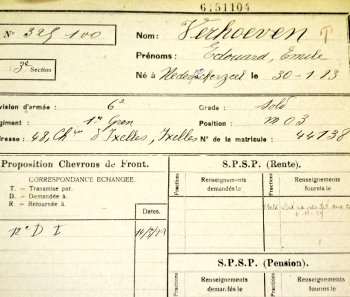 6151104
N° 325 100
Nom: Verhoeven
Prénoms: Edouard, Emile
3e Section
Né à Neder le 30-1.83
vision d'armée: 6e
Grade: Sold
giment: 1r Gren
Position: m 03
resse: 48, Chée d'Ixelles, Ixelles
N° de la matricule: 44138
Proposition Chevrons de Front.
CORRESPONDANCE ECHANGEE.
T. — Transmise par.
D. — Demandée à.
R. — Retournée à.
Dates.
D I
S.P.S.P. (Rente).
Fractions
Renseignements
demandés le
Fractions
Renseignements
fournis le
S.P.S.P. (Pension).
Fractions
Renseignements
demandés le
Fractions
Renseignements
fournis le